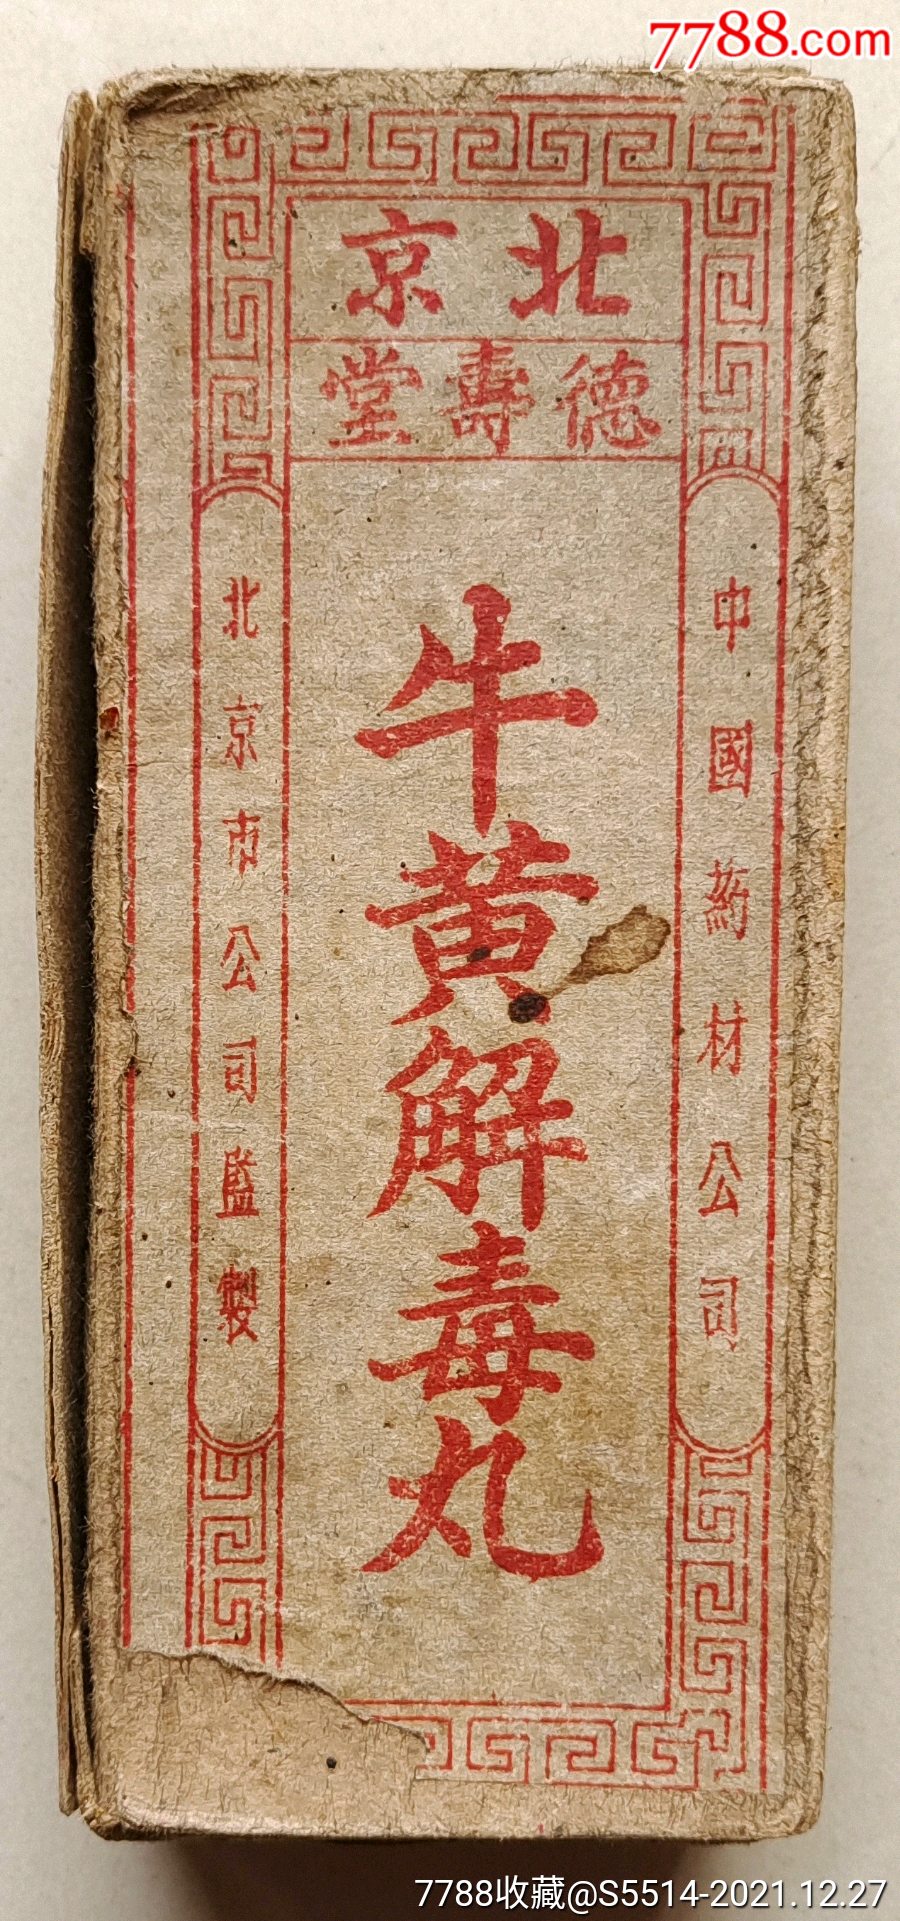 7788.com
北京
德壽堂
中國葯材公司
牛黄解毒丸
北京市公司監製
7788收藏@S5514-2021.12.27